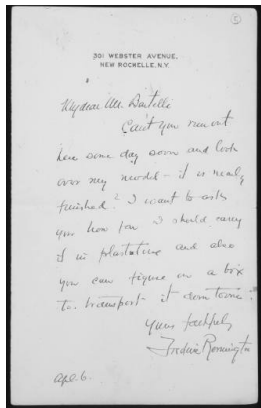 5
301 WEBSTER AVENUE,
NEW ROCHELLE, N.Y.
My dear Mr. Bartelle
Can't you run out
here some day soon and look
over my model - it is nearly
finished? I want to ask
you how far I should carry
it in plastaline and also
you can figure on a box
to transport it down town.
Yours faithfully
Frederic Remington
Apl. 6.